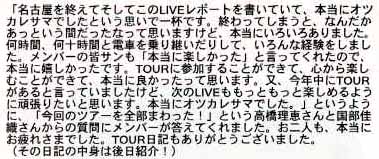 「名古屋を終えてそしてこのLIVEレポートを書いていて、本当にオツ
カレサマでしたという思いで一杯です。終わってしまうと、なんだか
あっという間だったなって思いますけど、本当にいろいろありました。
何時間、何十時間と電車を乗り継いだりして、いろんな経験をしまし
た。メンバーの皆サンも「本当に楽しかった」と言ってくれたので、
本当に嬉しかったです。TOURに参加することができて、心から楽し
むことができて、本当に良かったって思います。又、今年中にTOUR
があると言っていましたけど、次のLIVEももっともっと楽しめるよう
に頑張りたいと思います。本当にオツカレサマでした。」というよう
に、「今回のツアーを全部まわった!」という高橋理恵さんと国部佳
織さんからの質問にメンバーが答えてくれました。お二人も、本当に
お疲れさまでした。TOUR日記もありがとうございました。
(その日記の中身は後日紹介!)